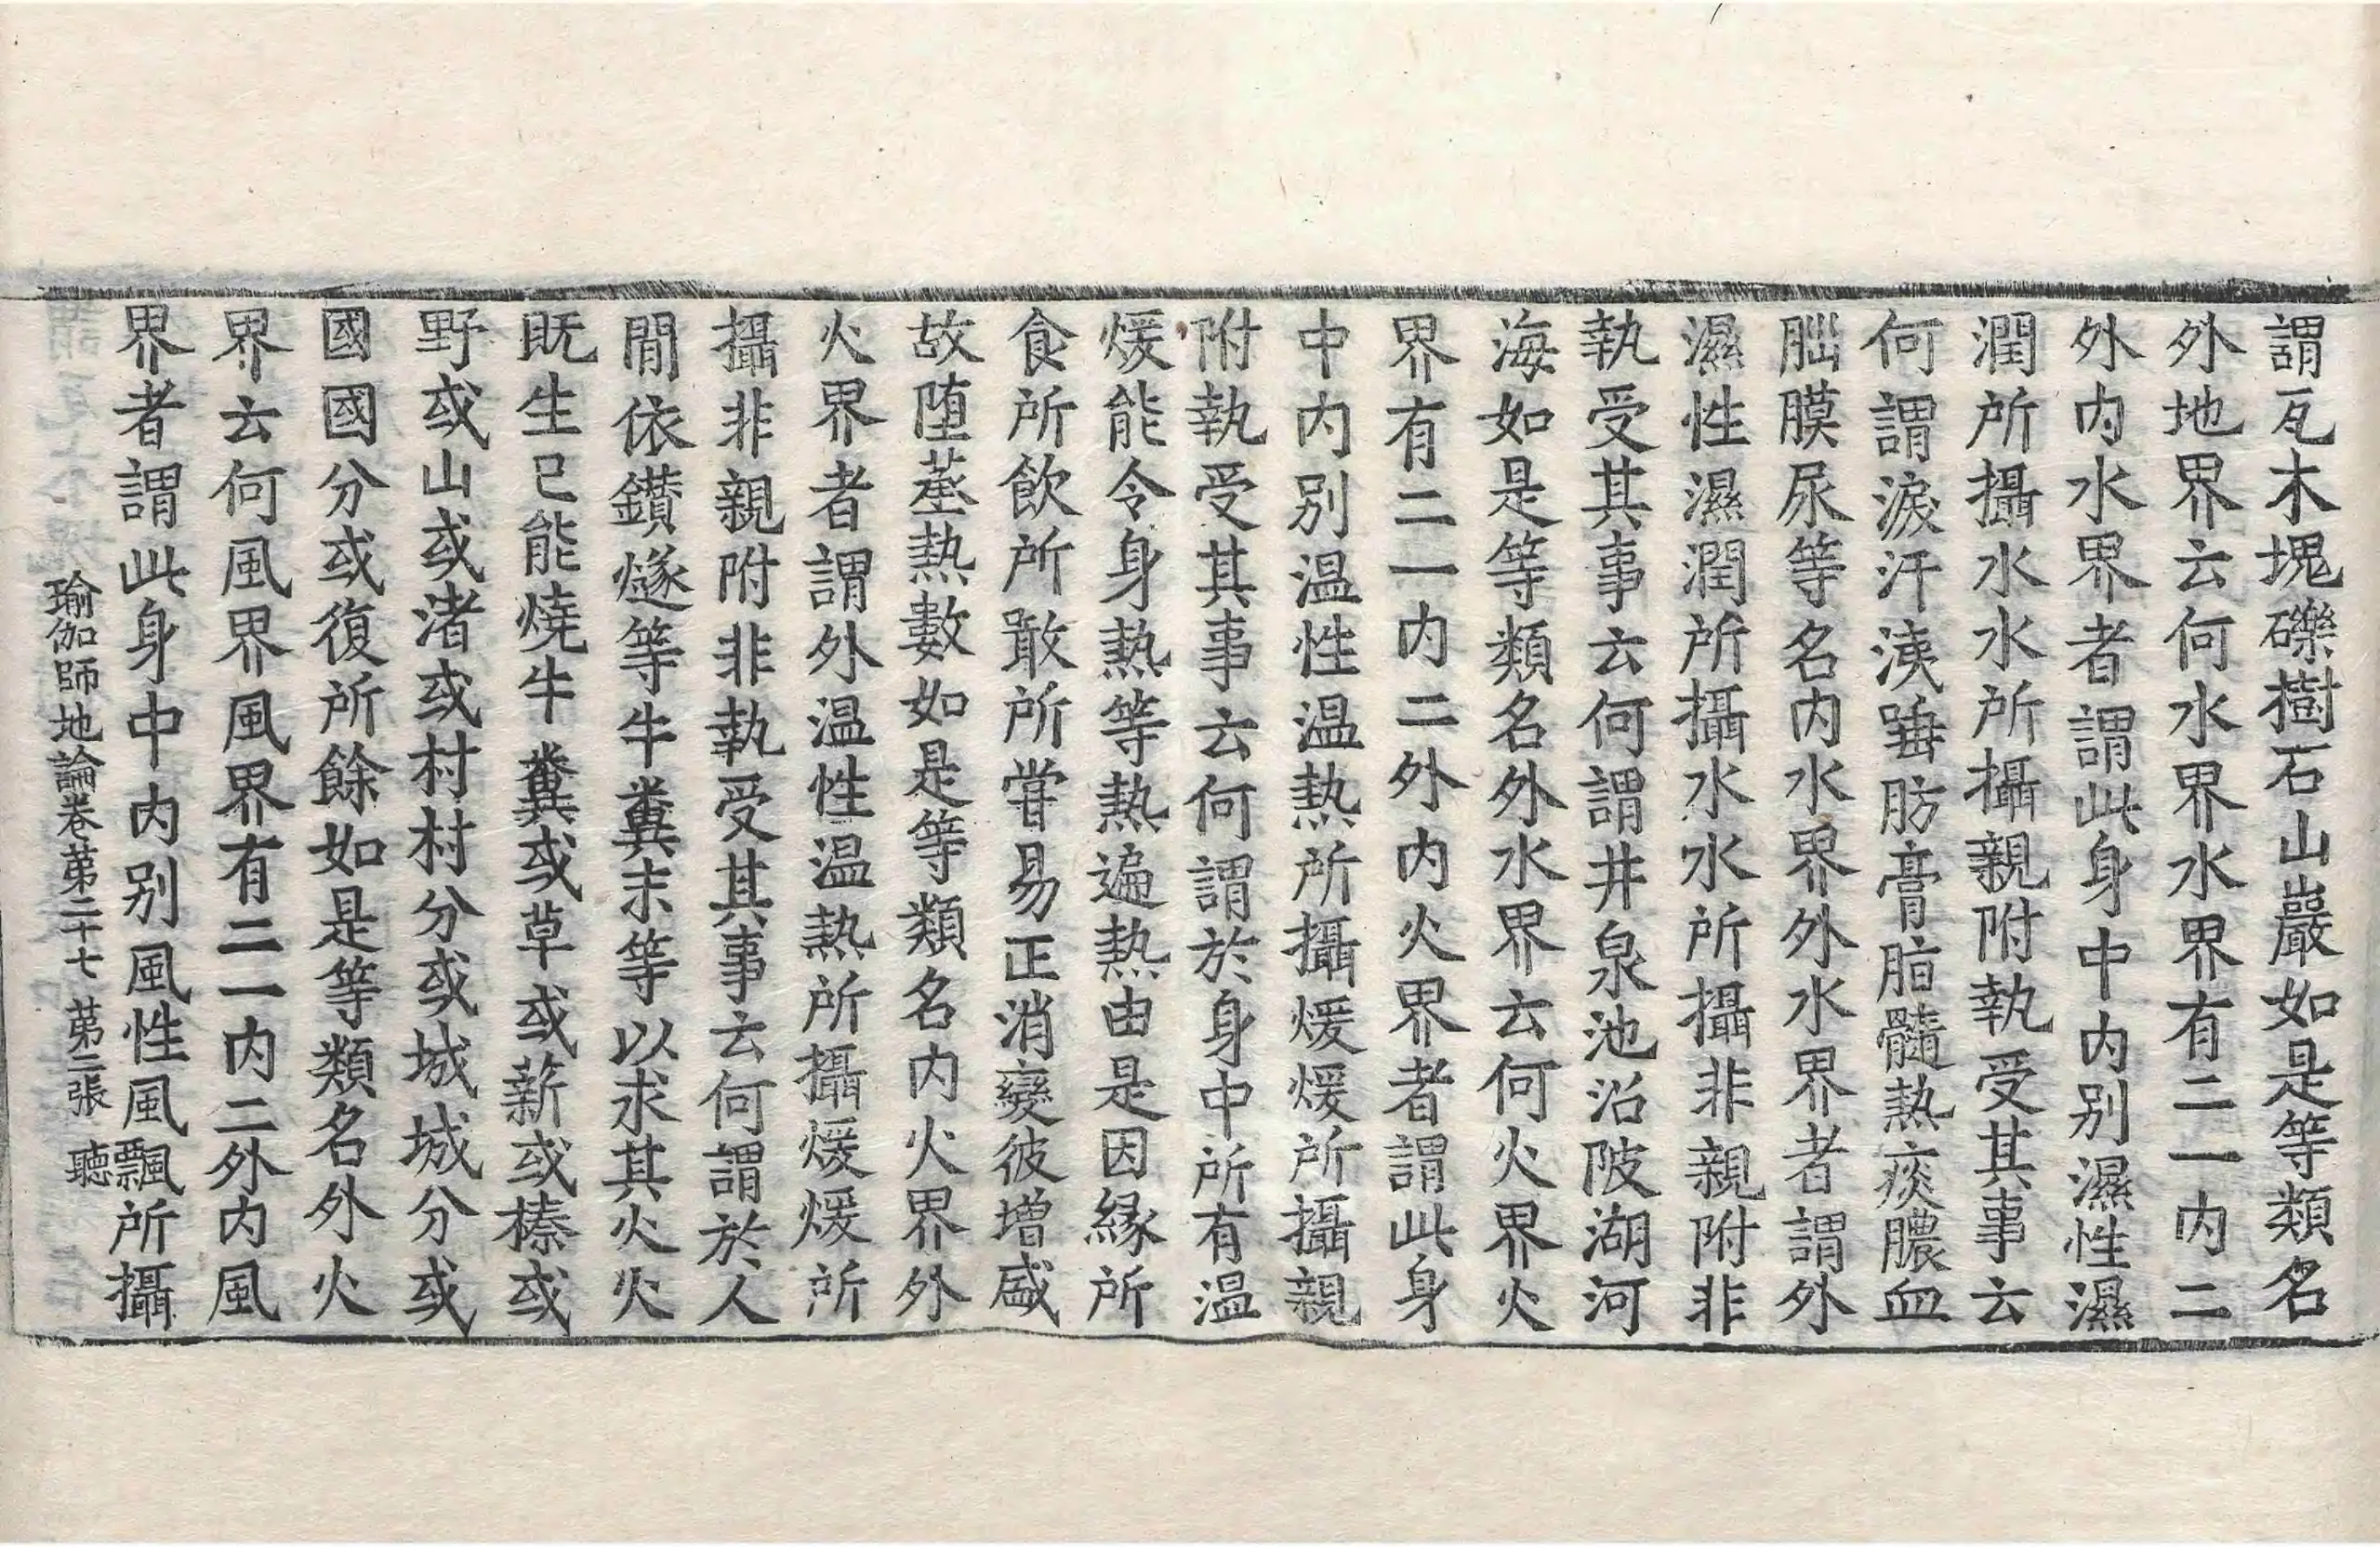 謂瓦木塊礫樹石山巖如是等類名
外地界云何水界水界有二一內二
外內水界者謂此身中內別濕性濕
潤所攝水水所攝親附執受其事云
何謂淚汗洟唾肪膏脂髓熱痰膿血
𦛁膜尿等名內水界外水界者謂外
濕性濕潤所攝水水所攝非親附非
執受其事云何謂井泉池沼陂湖河
海如是等類名外水界云何火界火
界有二一內二外內火界者謂此身
中內別温性温熱所攝煖煖所攝親
附執受其事云何謂於身中所有温
煖能令身熱等熱遍熱由是因緣所
食所飲所噉所嘗易正消變彼增盛
故墮蒸熱數如是等類名內火界外
火界者謂外温性温熱所攝煖煖所
攝非親附非執受其事云何謂於人
間依鑚燧等牛糞末等以求其火火
既生已能燒牛糞或草或薪或榛或
野或山或渚或村村分或城城分或
國國分或復所餘如是等類名外火
界云何風界風界有二一內二外內風
界者謂此身中內別風性風飄所攝
瑜伽師地論卷第二十七 第二張 聽